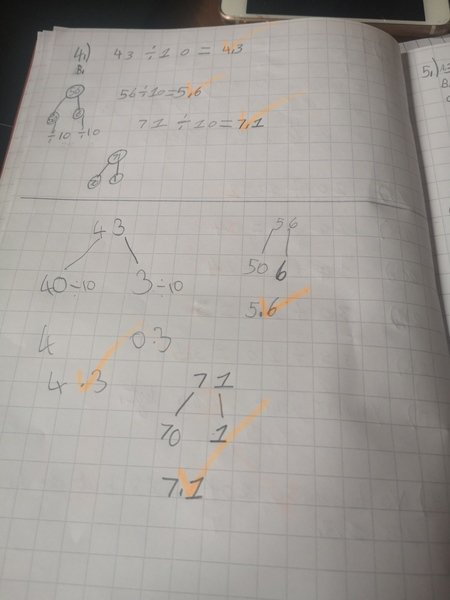 4.) 43 ÷ 10 = 4,3
B.
56 ÷ 10 = 5,6
÷10 ÷10
71 ÷ 10 = 7,1
71
1
43 56
40÷10 3÷10 50 6
5.6
4 0.3
4.3
71
70 1
7.1
5.)
B.